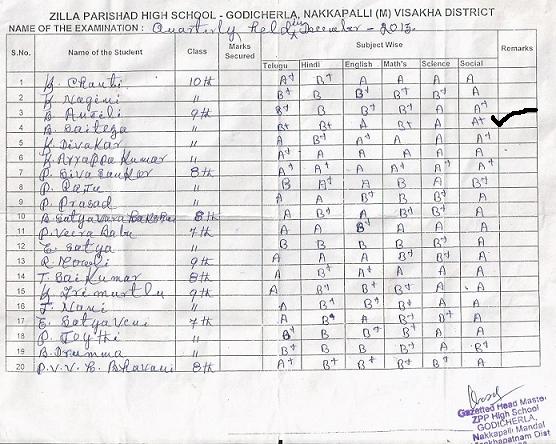 ZILLA PARISHAD HIGH SCHOOL - GODICHERLA, NAKKAPALLI (M) VISAKHA DISTRICT
NAME OF THE EXAMINATION : Quarterly held in December - 2013.
S.No. Name of the Student Class Marks Secured Subject Wise Remarks
Telugu Hindi English Math's Science Social
1 K. Chanti 10th A+ B+ A A A A
2 K Nagini " B+ B B+ B+ B+ A
3 B 9th B+ B B+ B+ A A+
4 B. Saiteja " B+ B+ A B+ A A+
5 K Divakar " A B+ A A A A+
6 K Arrappa Kumar " A+ A A A A A
7 P. Siva Sankar 8th A+ A A A+ A+ A+
8 P. Raju " B A+ A B A B+
9 P. Prasad " A A B+ B B+ A
10 B. 8th A B+ A B+ A A
11 P. Veera Babu 7th A A B+ A A A
12 E. Satya " B B B B B+ A
13 9th A A A B+ A A
14 T. Sai Kumar 8th A B+ A+ A A A
15 K Trimurtlu 9th A B+ B+ B+ A A
16 T. Nani " A B+ B+ B+ A A
17 E. Satyaveni 7th A B+ A B+ B+ A
18 P. Joythi " B+ B B+ B+ A A
19 B. " B+ B B A A B+
20 P. V. V. Bhavani 8th A+ B+ A B+ A A
Gazetted Head Master
ZPP High School
GODICHERLA,
Nakkapalli Mandal
Dist